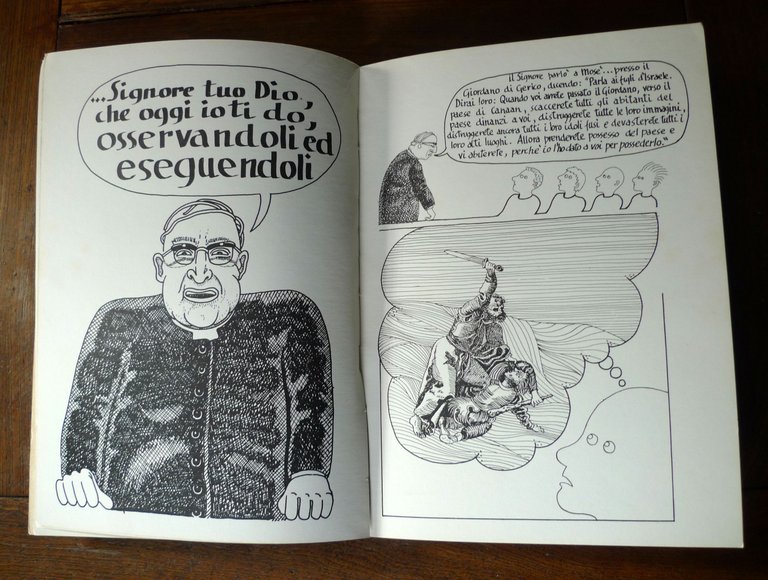 ...Signore tuo Dio,
che oggi io ti do,
osservandoli ed
eseguendoli
Il Signore parlò a Mosè... presso il
Giordano di Gerico, dicendo: "Parla ai figli d'Israele.
Dirai loro: Quando voi avrete passato il Giordano, verso il
paese di Canaan, scaccerete tutti gli abitanti del
paese dinanzi a voi, distruggerete tutte le loro immagini,
distruggerete ancora tutti i loro idoli fusi e devasterete tutti i
loro alti luoghi. Allora prenderete possesso del paese e
vi abiterete, perché io l'ho dato a voi per possederlo."